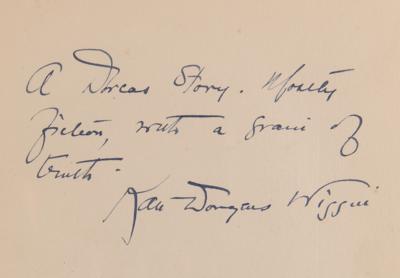 A Dorcas Story. Mostly
fiction, with a grain of
truth.
Kate Douglas Wiggin